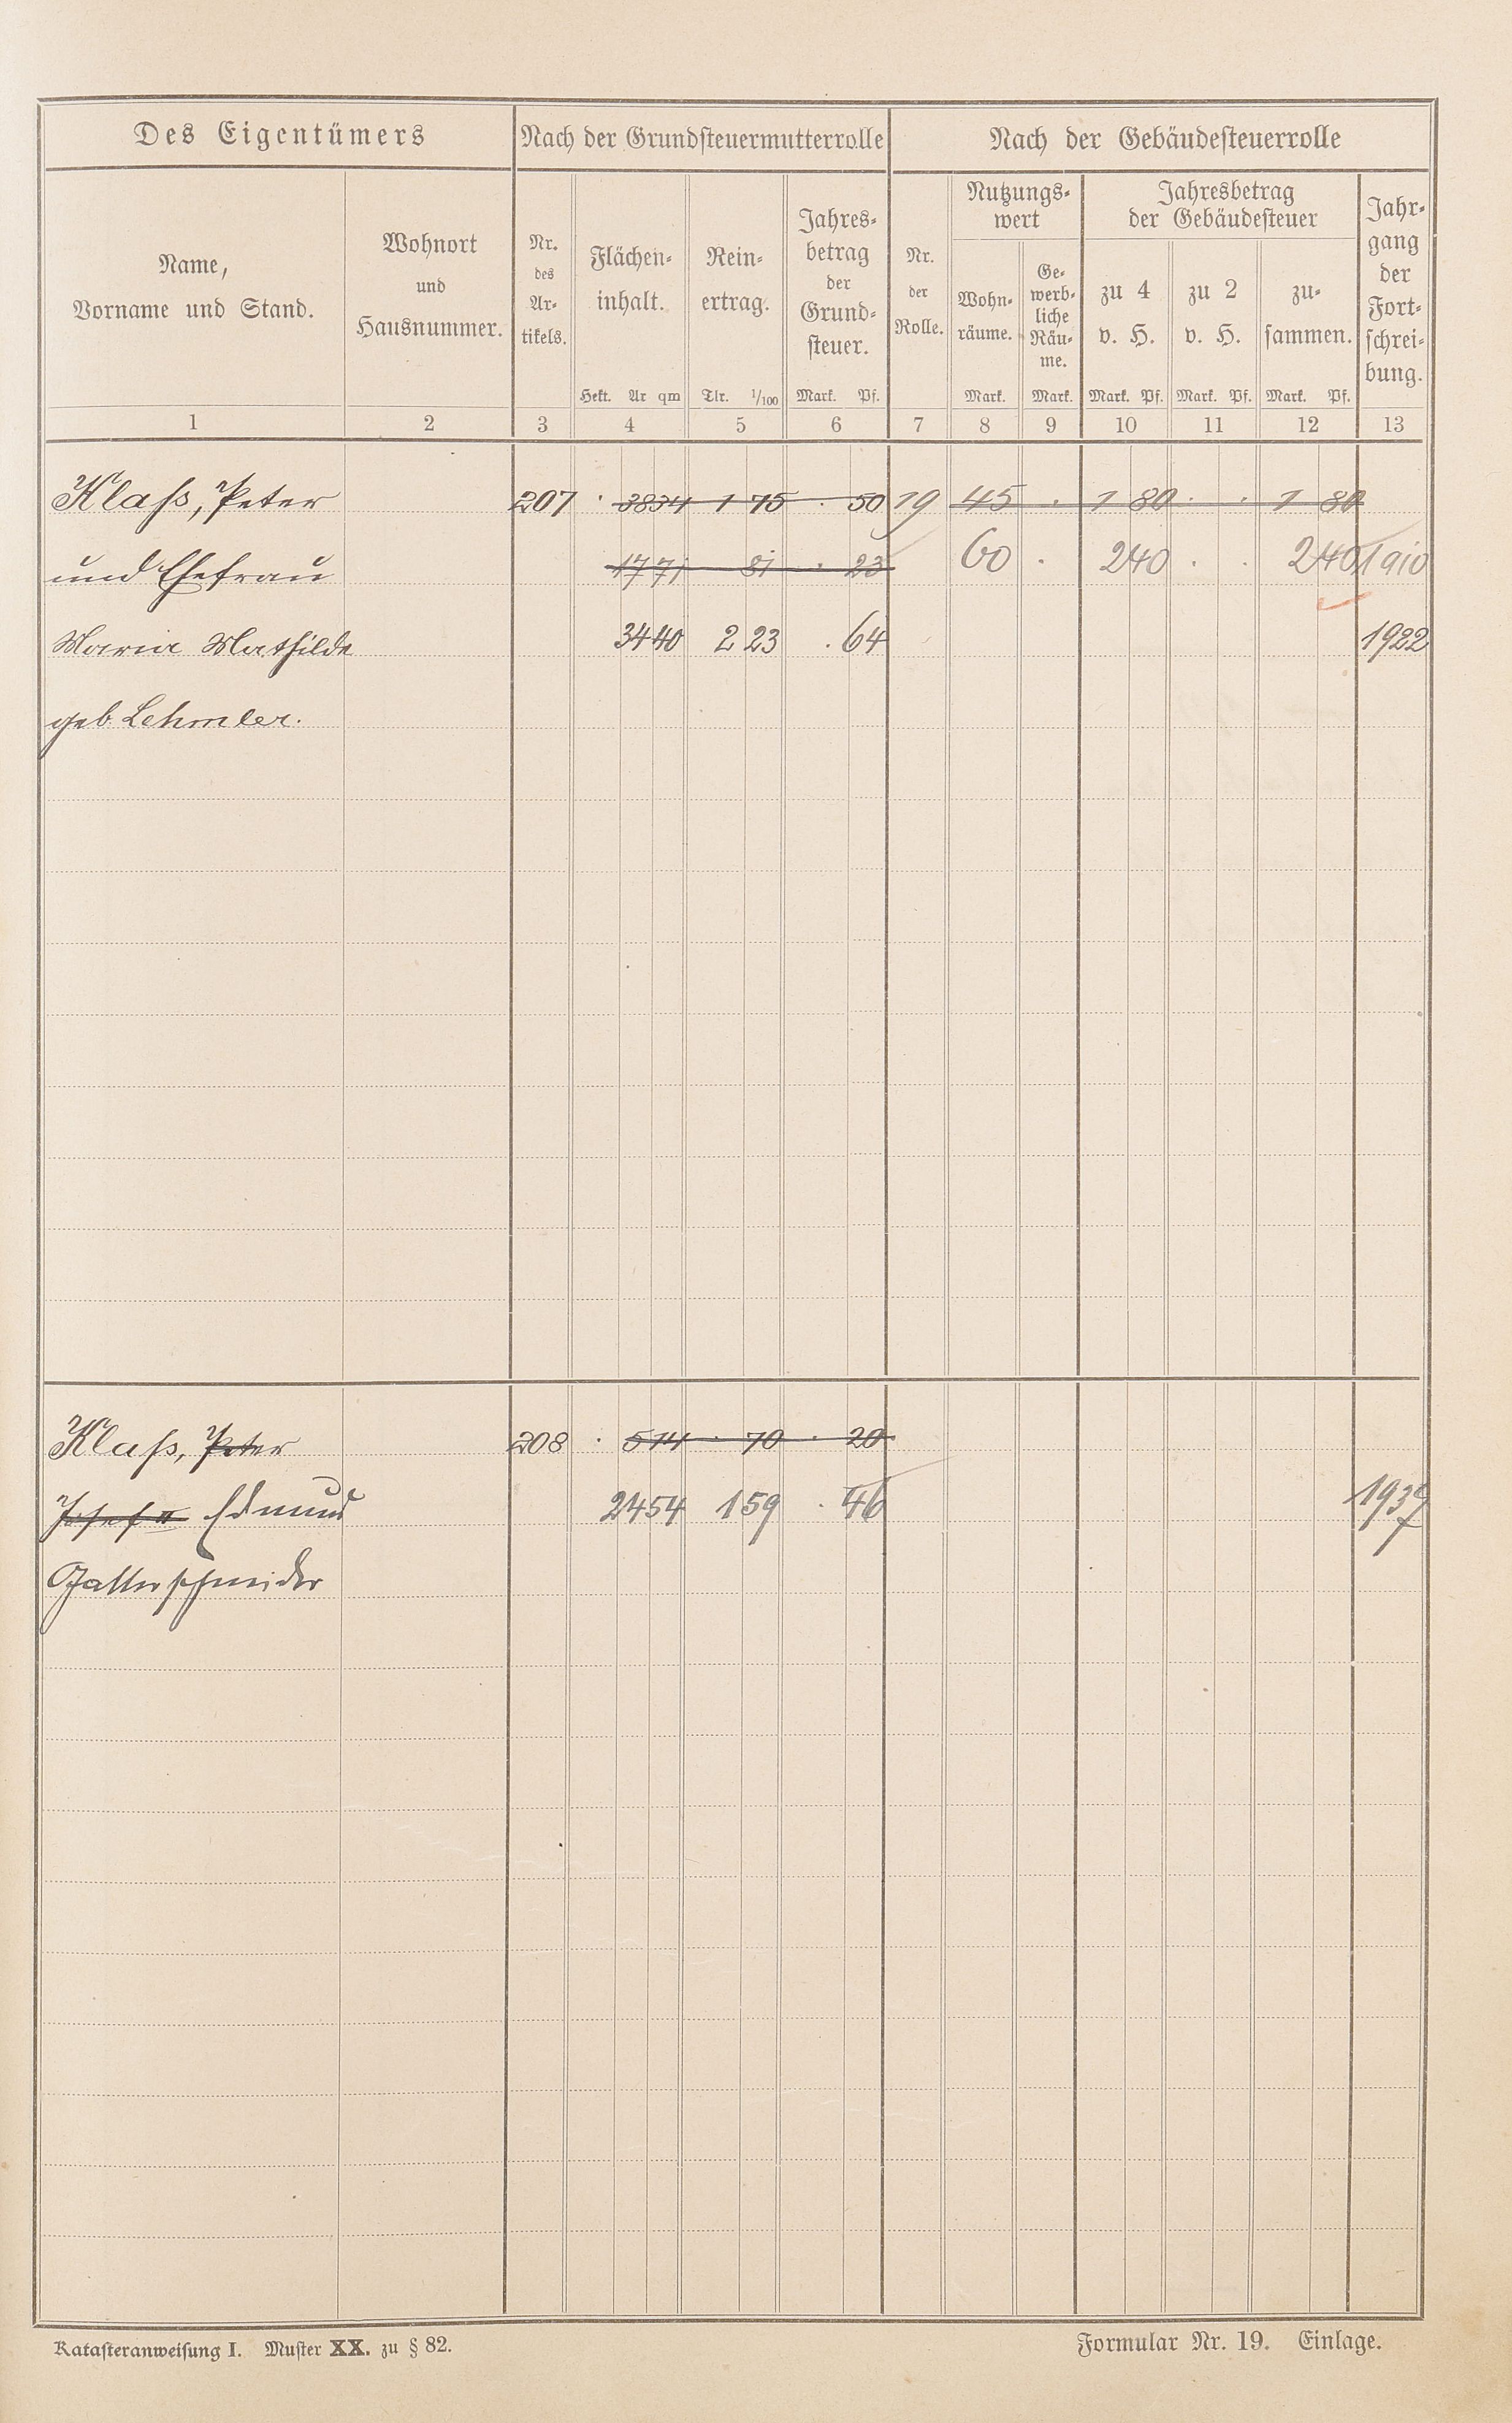 Des Eigentümers Nach der Grundsteuermutterrolle Nach der Gebäudesteuerrolle
Name,
Vorname und Stand.
Wohnort
und
Hausnummer.
Nr.
des
Ar-
tikels.
Flächen-
inhalt.
Hekt. Ar qm
Rein-
ertrag.
Tlr. 1/100
Jahres-
betrag
der
Grund-
steuer.
Mark. Pf.
Nr.
der
Rolle.
Nutzungs-
wert
Wohn-
räume.
Mark.
Ge-
werb-
liche
Räu-
me.
Mark.
Jahresbetrag
der Gebäudesteuer
zu 4
v. H.
Mark. Pf.
zu 2
v. H.
Mark. Pf.
zu-
sammen.
Mark. Pf.
Jahr-
gang
der
Fort-
schrei-
bung.
1 2 3 4 5 6 7 8 9 10 11 12 13
Klaß, Peter 207 . 3834 1 75 . 50 19 45 . 1 80 . . 1 80
und Ehefrau 1771 81 . 23 60 . 240 . . 240 1910
Maria Mathilde 3440 2 23 . 64 1922
geb. Lehmler.
Klaß, Peter 208 . 514 . 70 . 20
Josef II Edmund 2454 159 . 46 1937
Gatterschneider
Katasteranweisung I. Muster XX. zu § 82. Formular Nr. 19. Einlage.